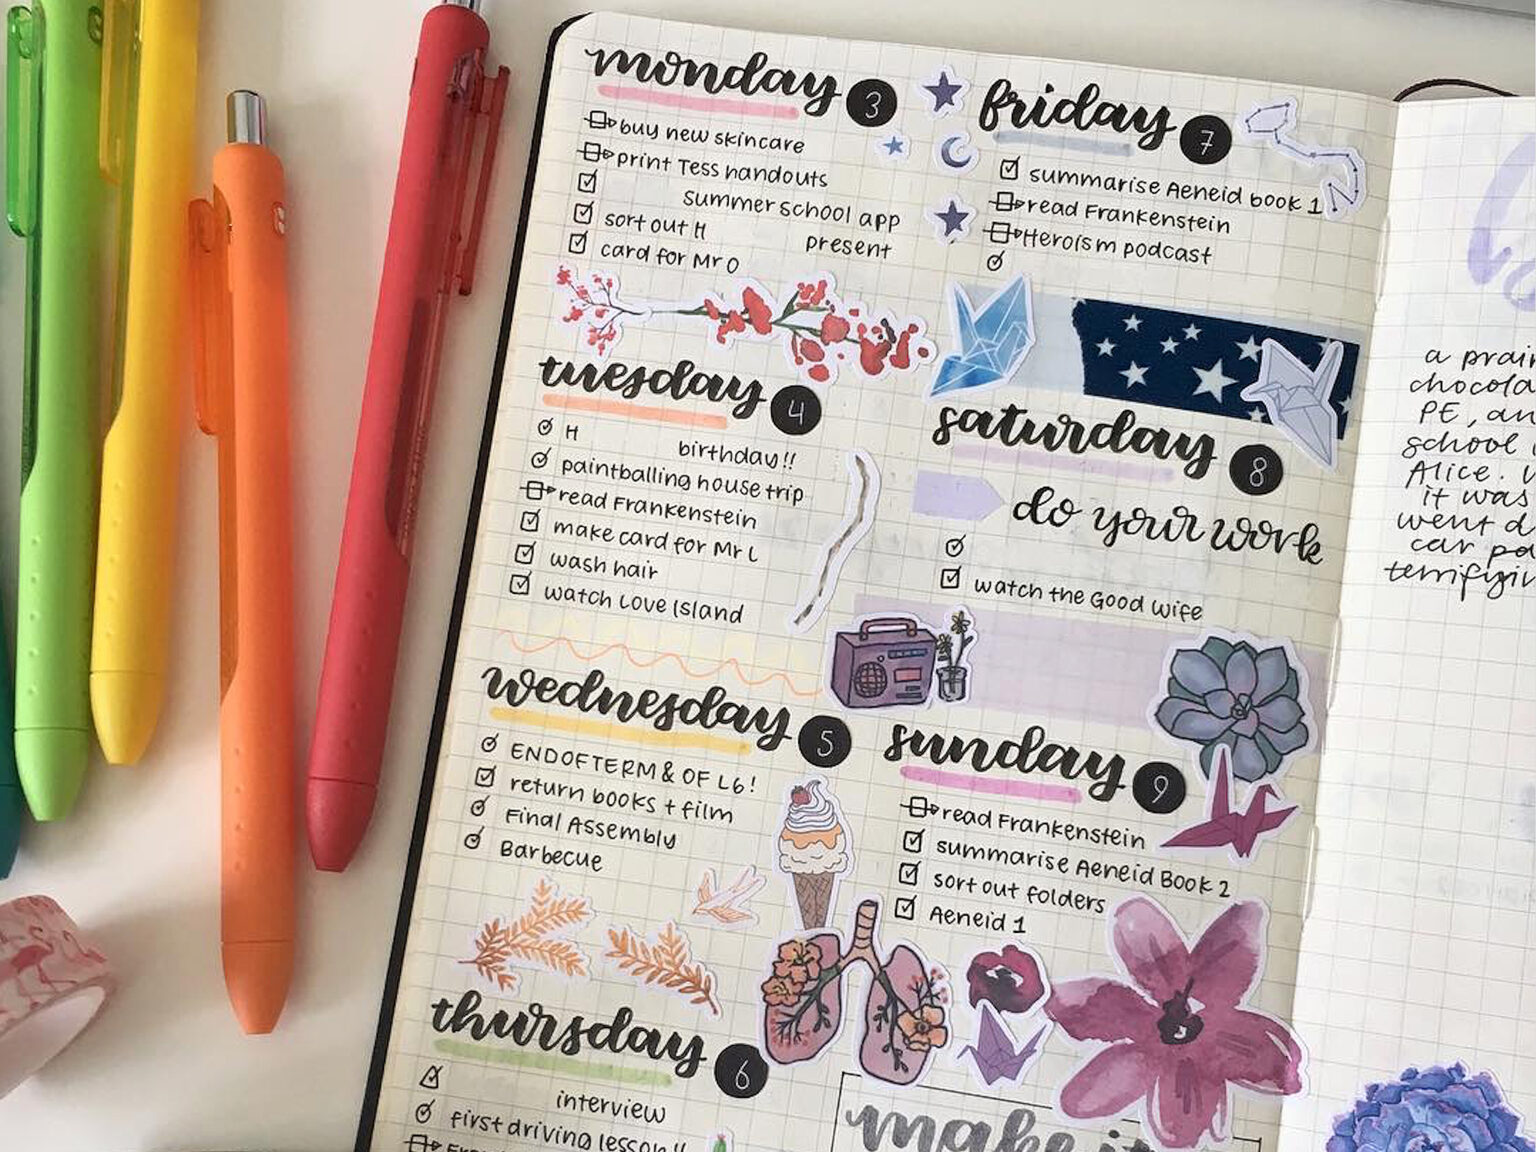 monday 3
buy new skincare
print Tess handouts
summer school app
sort out H present
card for Mr O
tuesday 4
H birthday!!
paintballing house trip
read Frankenstein
make card for Mr L
wash hair
watch Love Island
wednesday 5
END OF TERM & OF L6!
return books + film
Final Assembly
Barbecue
thursday 6
interview
first driving lesson!!
friday 7
summarise Aeneid book 1
read Frankenstein
Heroism podcast
saturday 8
do your work
watch the Good Wife
sunday 9
read Frankenstein
summarise Aeneid Book 2
sort out folders
Aeneid 1
make it
a
chocola
PE, an
school
Alice.
it was
went d
car
terrifyin